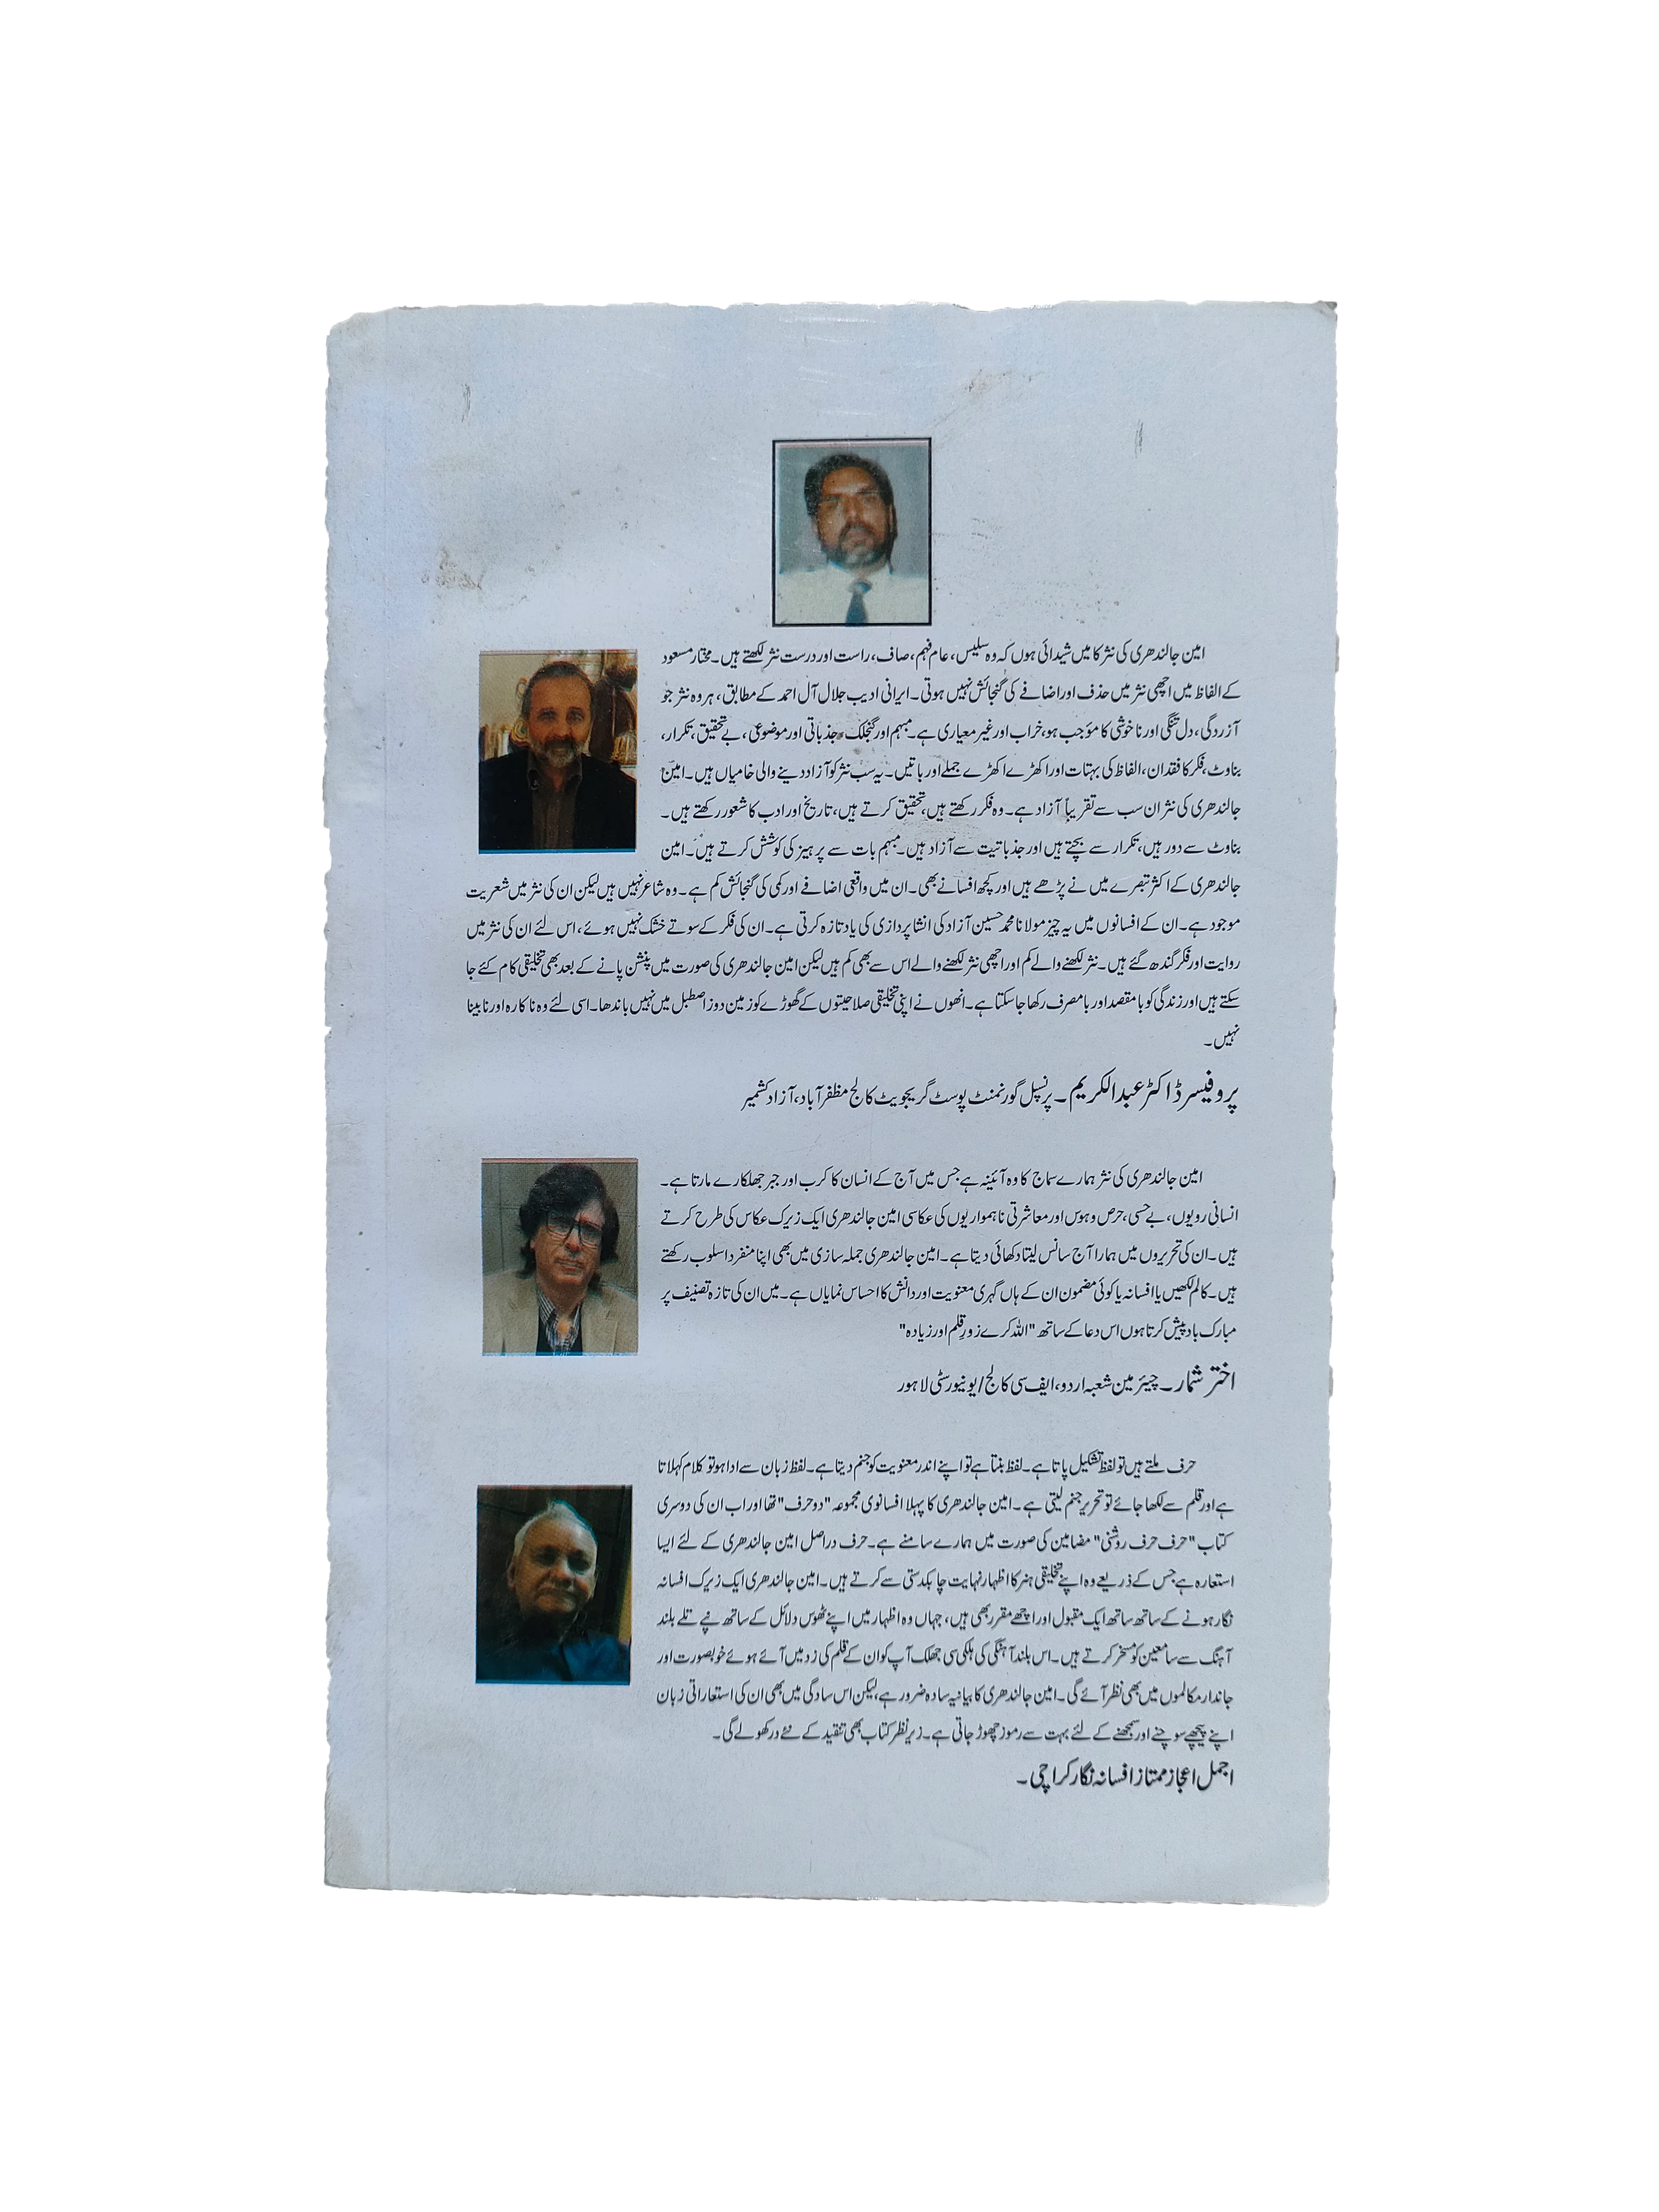 امین جالندھری کی نثر کا میں شیدائی ہوں کہ وہ سلیس، عام فہم، صاف، راست اور درست نثر لکھتے ہیں۔ مختار مسعود
کے الفاظ میں اچھی نثر میں حذف اور اضافے کی گنجائش نہیں ہوتی۔ ایرانی ادیب جلال آل احمد کے مطابق، ہر وہ نثر جو
آزردگی، دل تنگی اور ناخوشی کا مؤجب ہو، خراب اور غیر معیاری ہے۔ مبہم اور گنجلک، جذباتی اور موضوعی، بے تحقیق، تکرار،
بناوٹ، فکر کا فقدان، الفاظ کی بہتات اور اکھڑے اکھڑے جملے اور باتیں۔ یہ سب نثر کو آزاد دینے والی خامیاں ہیں۔ امین
جالندھری کی نثر ان سب سے تقریباً آزاد ہے۔ وہ فکر رکھتے ہیں، تحقیق کرتے ہیں، تاریخ اور ادب کا شعور رکھتے ہیں۔
بناوٹ سے دور ہیں، تکرار سے بچتے ہیں اور جذباتیت سے آزاد ہیں۔ مبہم بات سے پرہیز کی کوشش کرتے ہیں۔ امین
جالندھری کے اکثر تبصرے میں نے پڑھے ہیں اور کچھ افسانے بھی۔ ان میں واقعی اضافے اور کمی کی گنجائش کم ہے۔ وہ شاعر نہیں ہیں لیکن ان کی نثر میں شعریت
موجود ہے۔ ان کے افسانوں میں یہ چیز مولانا محمد حسین آزاد کی انشا پردازی کی یاد تازہ کرتی ہے۔ ان کی فکر کے سوتے خشک نہیں ہوئے، اس لئے ان کی نثر میں
روایت اور فکر گندھ گئے ہیں۔ نثر لکھنے والے کم اور اچھی نثر لکھنے والے اس سے بھی کم ہیں لیکن امین جالندھری کی صورت میں پنشن پانے کے بعد بھی تخلیقی کام کئے جا
سکتے ہیں اور زندگی کو بامقصد اور بامصرف رکھا جا سکتا ہے۔ انھوں نے اپنی تخلیقی صلاحیتوں کے گھوڑے کو زمین دوز اصطبل میں نہیں باندھا۔ اسی لئے وہ ناکارہ اور نابینا
نہیں۔
پروفیسر ڈاکٹر عبدالکریم۔ پرنسپل گورنمنٹ پوسٹ گریجویٹ کالج مظفر آباد، آزاد کشمیر
امین جالندھری کی نثر ہمارے سماج کا وہ آئینہ ہے جس میں آج کے انسان کا کرب اور جبر جھلکارے مارتا ہے۔
انسانی رویوں، بے حسی، حرص و ہوس اور معاشرتی ناہمواریوں کی عکاسی امین جالندھری ایک زیرک عکاس کی طرح کرتے
ہیں۔ ان کی تحریروں میں ہمارا آج سانس لیتا دکھائی دیتا ہے۔ امین جالندھری جملہ سازی میں بھی اپنا منفرد اسلوب رکھتے
ہیں۔ کالم لکھیں یا افسانہ یا کوئی مضمون ان کے ہاں گہری معنویت اور دانش کا احساس نمایاں ہے۔ میں ان کی تازہ تصنیف پر
مبارک باد پیش کرتا ہوں اس دعا کے ساتھ "اللہ کرے زورِ قلم اور زیادہ"
اختر شمار۔ چیئرمین شعبہ اردو، ایف سی کالج/ یونیورسٹی لاہور
حرف ملتے ہیں تو لفظ تشکیل پاتا ہے۔ لفظ بنتا ہے تو اپنے اندر معنویت کو جنم دیتا ہے۔ لفظ زبان سے ادا ہو تو کلام کہلاتا
ہے اور قلم سے لکھا جائے تو تحریر جنم لیتی ہے۔ امین جالندھری کا پہلا افسانوی مجموعہ "دو حرف" تھا اور اب ان کی دوسری
کتاب "حرف حرف روشنی" مضامین کی صورت میں ہمارے سامنے ہے۔ حرف دراصل امین جالندھری کے لئے ایسا
استعارہ ہے جس کے ذریعے وہ اپنے تخلیقی ہنر کا اظہار نہایت چابکدستی سے کرتے ہیں۔ امین جالندھری ایک زیرک افسانہ
نگار ہونے کے ساتھ ساتھ ایک مقبول اور اچھے مقرر بھی ہیں، جہاں وہ اظہار میں اپنے ٹھوس دلائل کے ساتھ نپے تلے بلند
آہنگ سے سامعین کو مسخر کرتے ہیں۔ اس بلند آہنگی کی ہلکی سی جھلک آپ کو ان کے قلم کی زد میں آئے ہوئے خوبصورت اور
جاندار مکالموں میں بھی نظر آئے گی۔ امین جالندھری کا بیانیہ سادہ ضرور ہے، لیکن اس سادگی میں بھی ان کی استعاراتی زبان
اپنے پیچھے سوچنے اور سمجھنے کے لئے بہت سے رموز چھوڑ جاتی ہے۔ زیر نظر کتاب بھی تنقید کے نئے در کھولے گی۔
اجمل اعجاز ممتاز افسانہ نگار کراچی۔